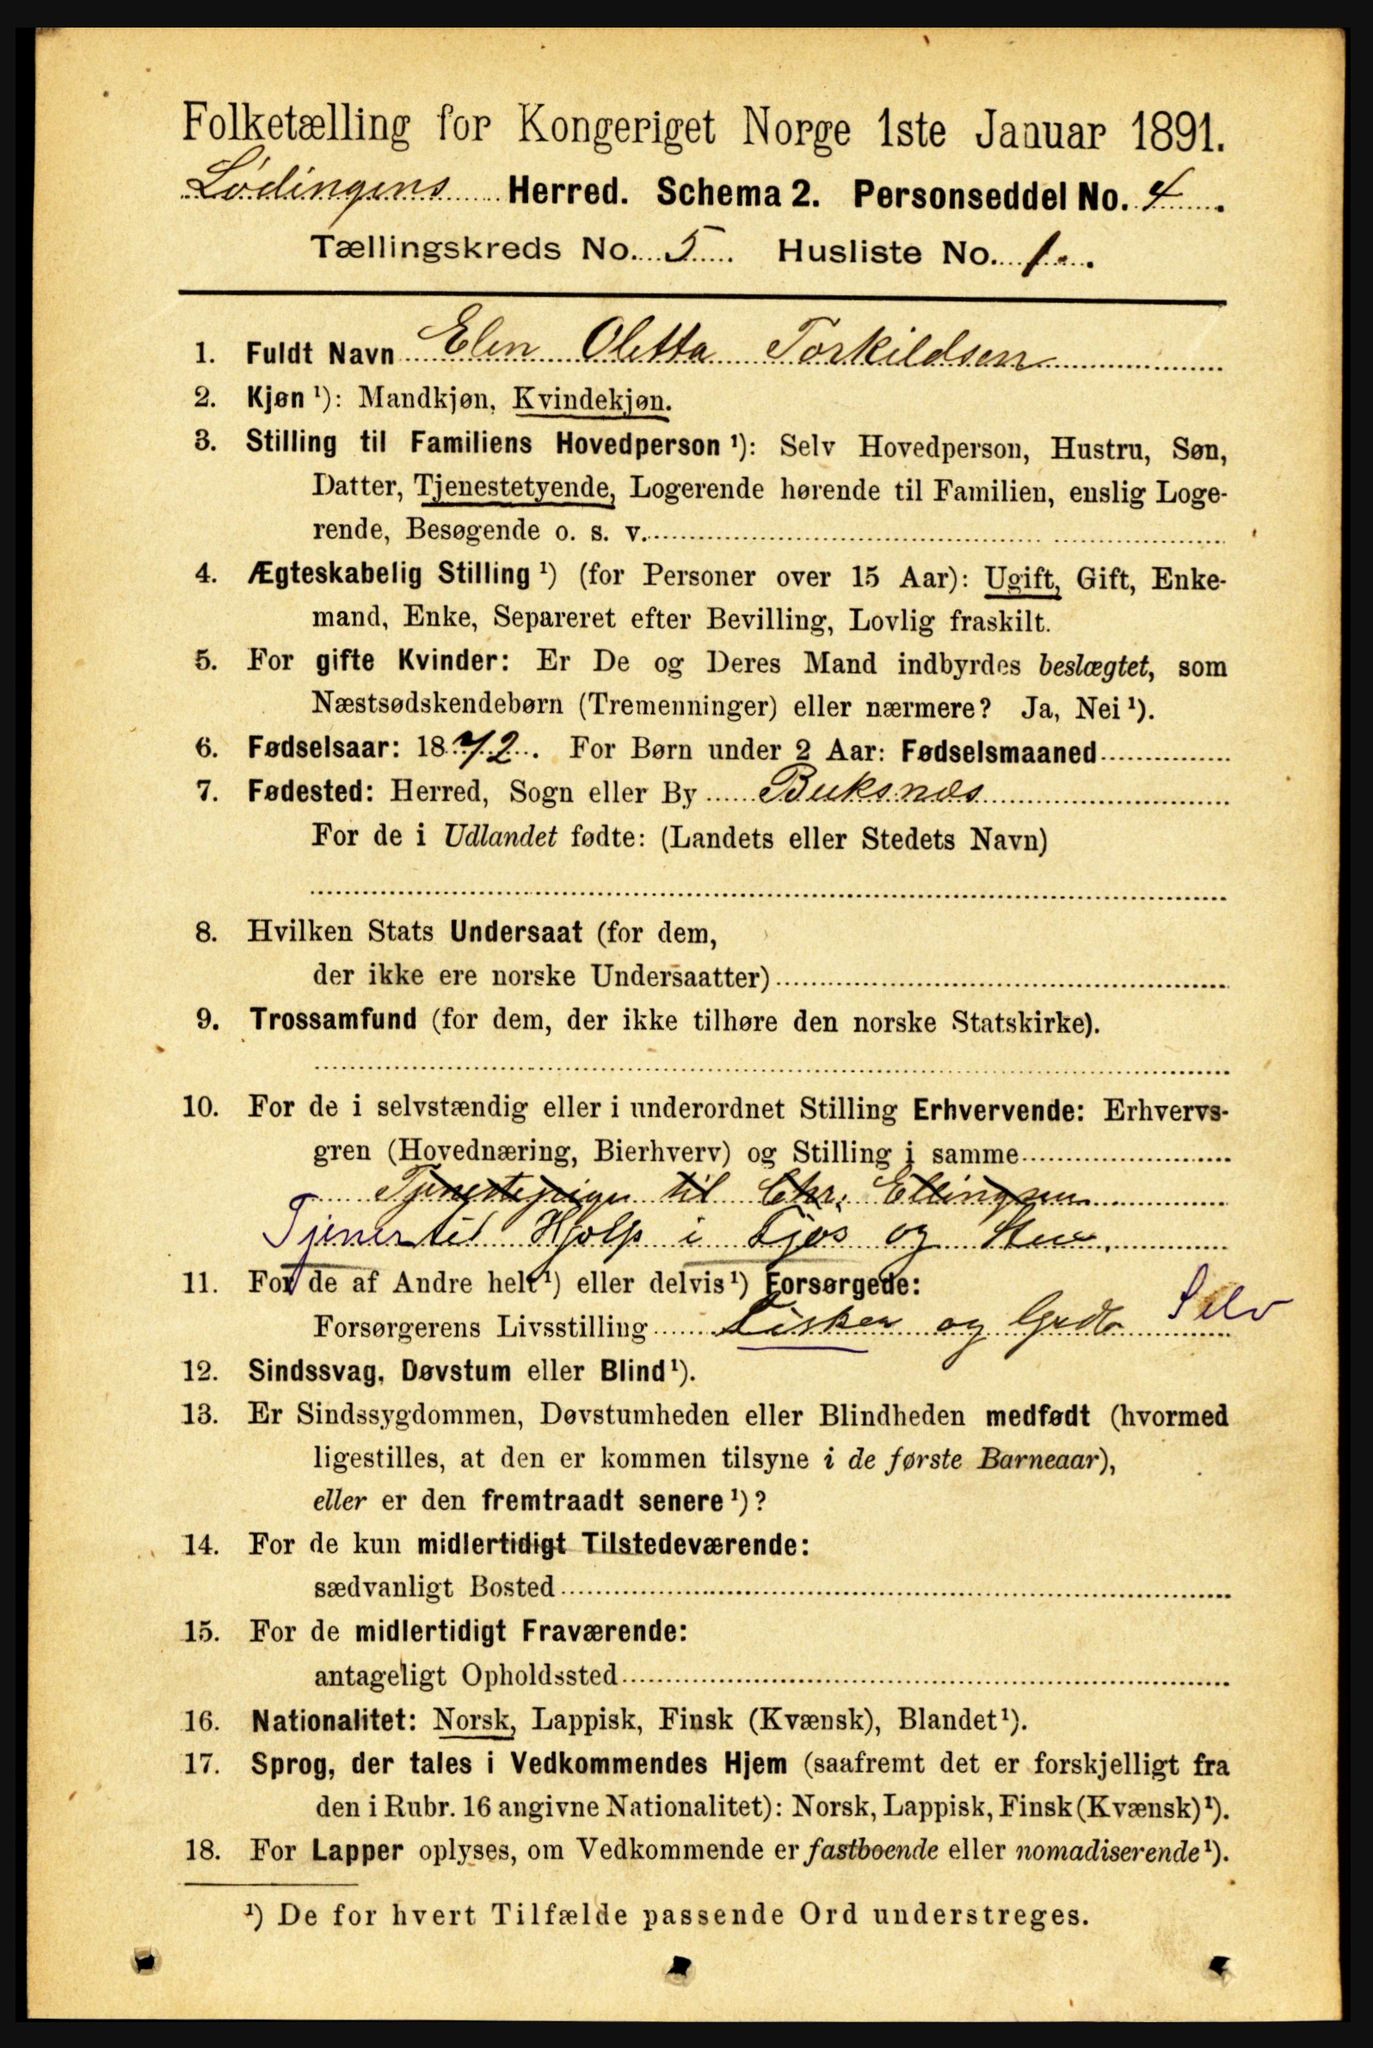 Folketælling for Kongeriget Norge 1ste Januar 1891.
Lødingens Herred. Schema 2. Personseddel No. 4.
Tællingskreds No. 5. Husliste No. 1.
1. Fuldt Navn Elen Oletta Torkildsen
2. Kjøn ¹): Mandkjøn, Kvindekjøn.
3. Stilling til Familiens Hovedperson ¹): Selv Hovedperson, Hustru, Søn,
Datter, Tjenestetyende, Logerende hørende til Familien, enslig Loge-
rende, Besøgende o. s. v.
4. Ægteskabelig Stilling ¹) (for Personer over 15 Aar): Ugift, Gift, Enke-
mand, Enke, Separeret efter Bevilling, Lovlig fraskilt.
5. For gifte Kvinder: Er De og Deres Mand indbyrdes beslægtet, som
Næstsødskendebørn (Tremenninger) eller nærmere? Ja, Nei ¹).
6. Fødselsaar: 1872. For Børn under 2 Aar: Fødselsmaaned
7. Fødested: Herred, Sogn eller By Buksnes
For de i Udlandet fødte: (Landets eller Stedets Navn)
8. Hvilken Stats Undersaat (for dem,
der ikke ere norske Undersaatter)
9. Trossamfund (for dem, der ikke tilhøre den norske Statskirke).
10. For de i selvstændig eller i underordnet Stilling Erhvervende: Erhvervs-
gren (Hovednæring, Bierhverv) og Stilling i samme
Tjenestepige til Chr. Ellingsen
Tjener til Hjelp i Fjøs og Hus.
11. For de af Andre helt ¹) eller delvis ¹) Forsørgede:
Forsørgerens Livsstilling Fisker og Grdb Selv
12. Sindssvag, Døvstum eller Blind ¹).
13. Er Sindssygdommen, Døvstumheden eller Blindheden medfødt (hvormed
ligestilles, at den er kommen tilsyne i de første Barneaar),
eller er den fremtraadt senere ¹)?
14. For de kun midlertidigt Tilstedeværende:
sædvanligt Bosted
15. For de midlertidigt Fraværende:
antageligt Opholdssted
16. Nationalitet: Norsk, Lappisk, Finsk (Kvænsk), Blandet ¹).
17. Sprog, der tales i Vedkommendes Hjem (saafremt det er forskjelligt fra
den i Rubr. 16 angivne Nationalitet): Norsk, Lappisk, Finsk (Kvænsk) ¹).
18. For Lapper oplyses, om Vedkommende er fastboende eller nomadiserende ¹).
¹) De for hvert Tilfælde passende Ord understreges.